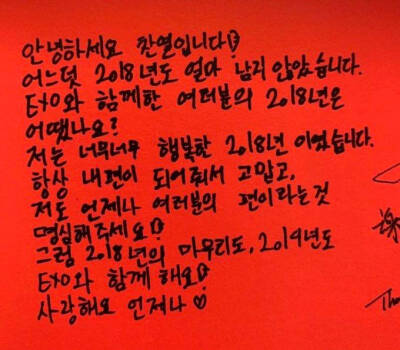 안녕하세요 찬열입니다!
어느덧 2018년도 얼마 남지 않았습니다.
EXO와 함께한 여러분의 2018년은
어땠나요?
저는 너무너무 행복한 2018년 이였습니다.
항상 내편이 되어줘서 고맙고,
저도 언제나 여러분의 편이라는것
명심해주세요!
그럼 2018년의 마무리도, 2019년도
EXO와 함께 해요!
사랑해요 언제나 ♡